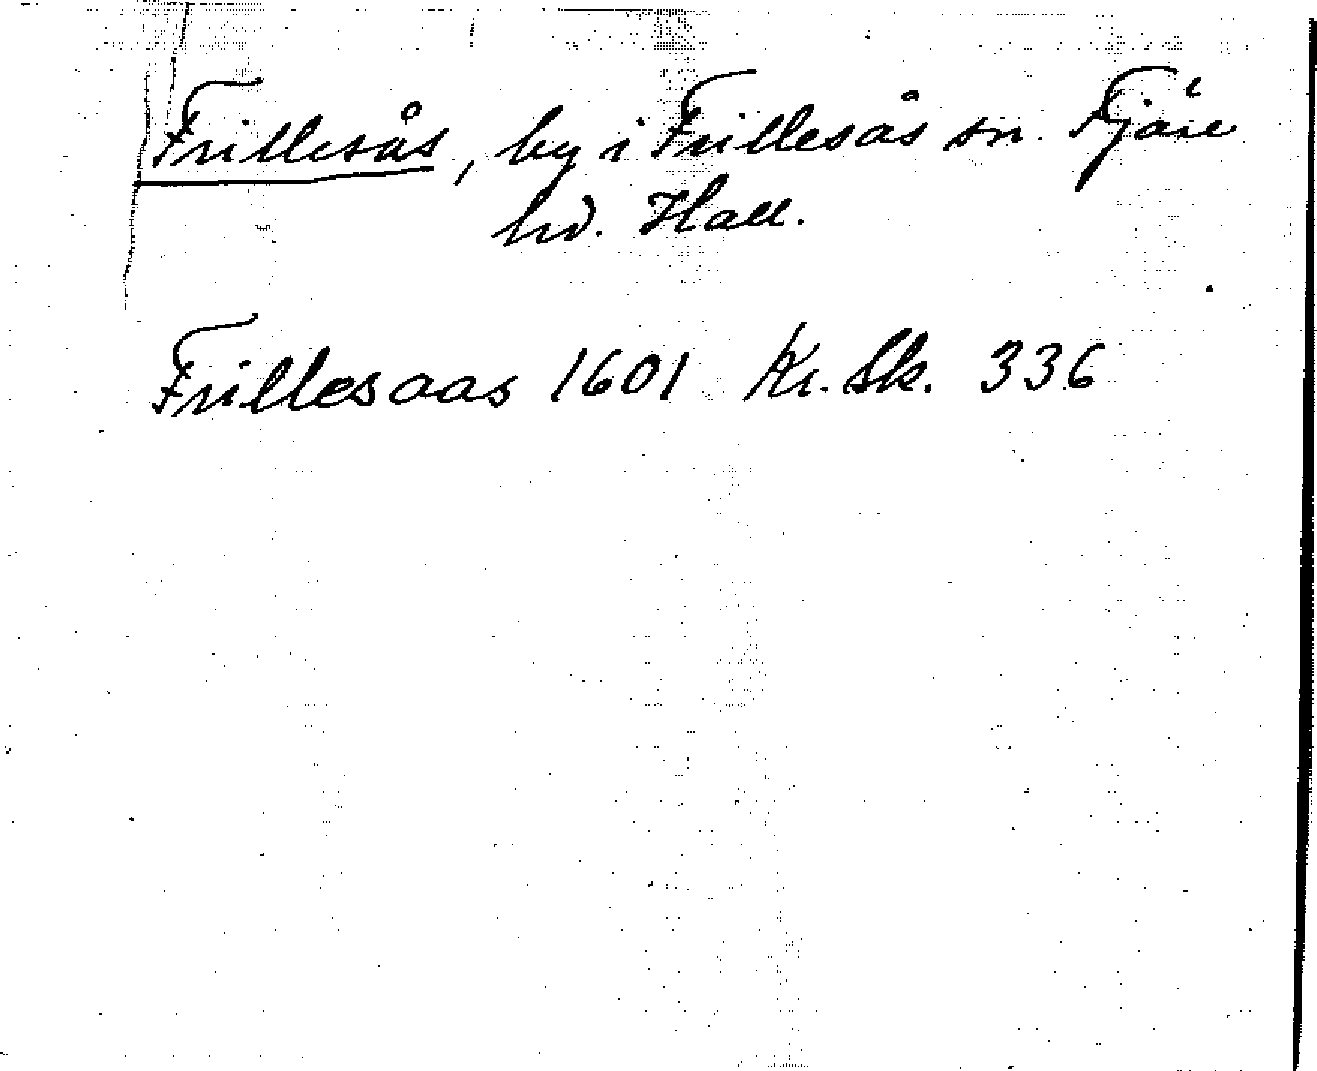 Frillesås, by i Frillesås sn. Fjäre
hd. Hall.
Frillesaas 1601 Kr. Sk. 336